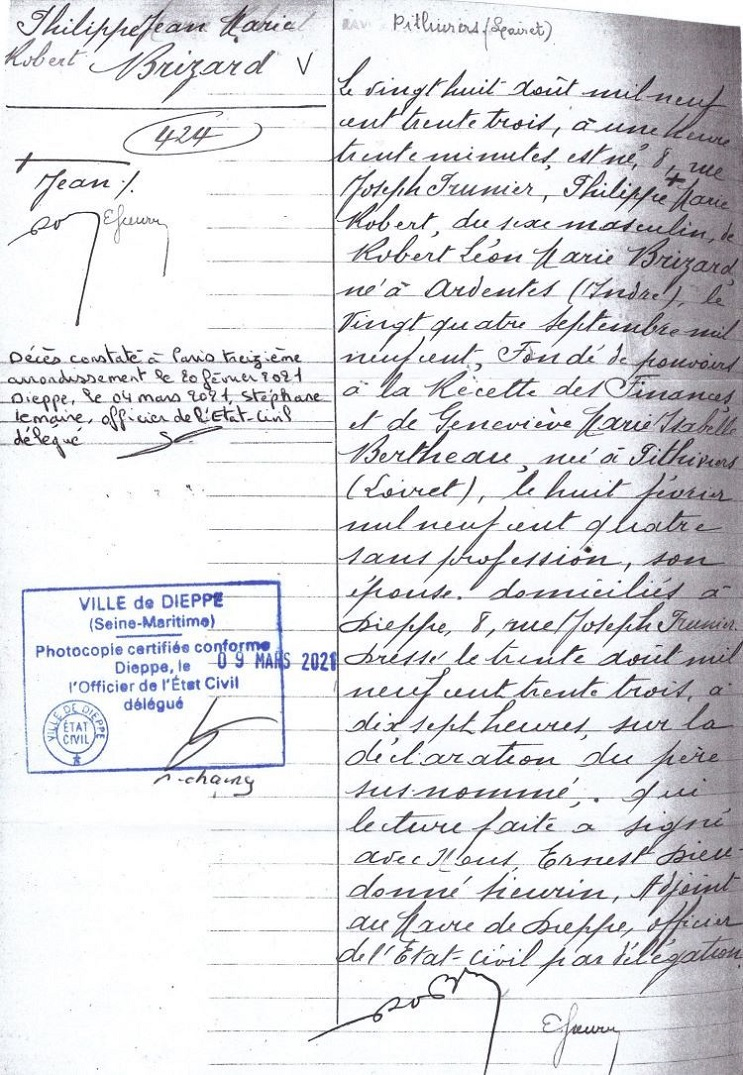 Philippe Jean Marie
Robert Brizard V
424
+
Jean /.
Décès constaté à Paris treizième
arrondissement le 20 février 2021
Dieppe, le 04 mars 2021, Stéphane
Lemaire, officier de l'Etat-Civil
délégué
VILLE de DIEPPE
(Seine-Maritime)
Photocopie certifiée conforme
Dieppe, le 09 MARS 2021
l'Officier de l'État Civil
délégué
VILLE DE DIEPPE
ÉTAT
CIVIL
Pithiviers (Loiret)
Le vingt huit août mil neuf
cent trente trois, à une heure
trente minutes, est né, 8, rue
Joseph Frunier, Philippe + Marie
Robert, du sexe masculin, de
Robert Léon Marie Brizard,
né à Ardentes (Indre), le
vingt quatre septembre mil
neuf cent, Fondé de pouvoirs
à la Recette des Finances,
et de Geneviève Marie Isabelle
Bertheau, née à Pithiviers
(Loiret), le huit février
mil neuf cent quatre
sans profession, son
épouse. domiciliés à
Dieppe, 8, rue Joseph Frunier.
Dressé le trente août mil
neuf cent trente trois, à
dix sept heures, sur la
déclaration du père
sus nommé. qui
lecture faite a signé
avec Nous, Ernest Dieu-
donné Sieurin, Adjoint
au Maire de Dieppe, officier
de l'Etat-Civil par délégation.